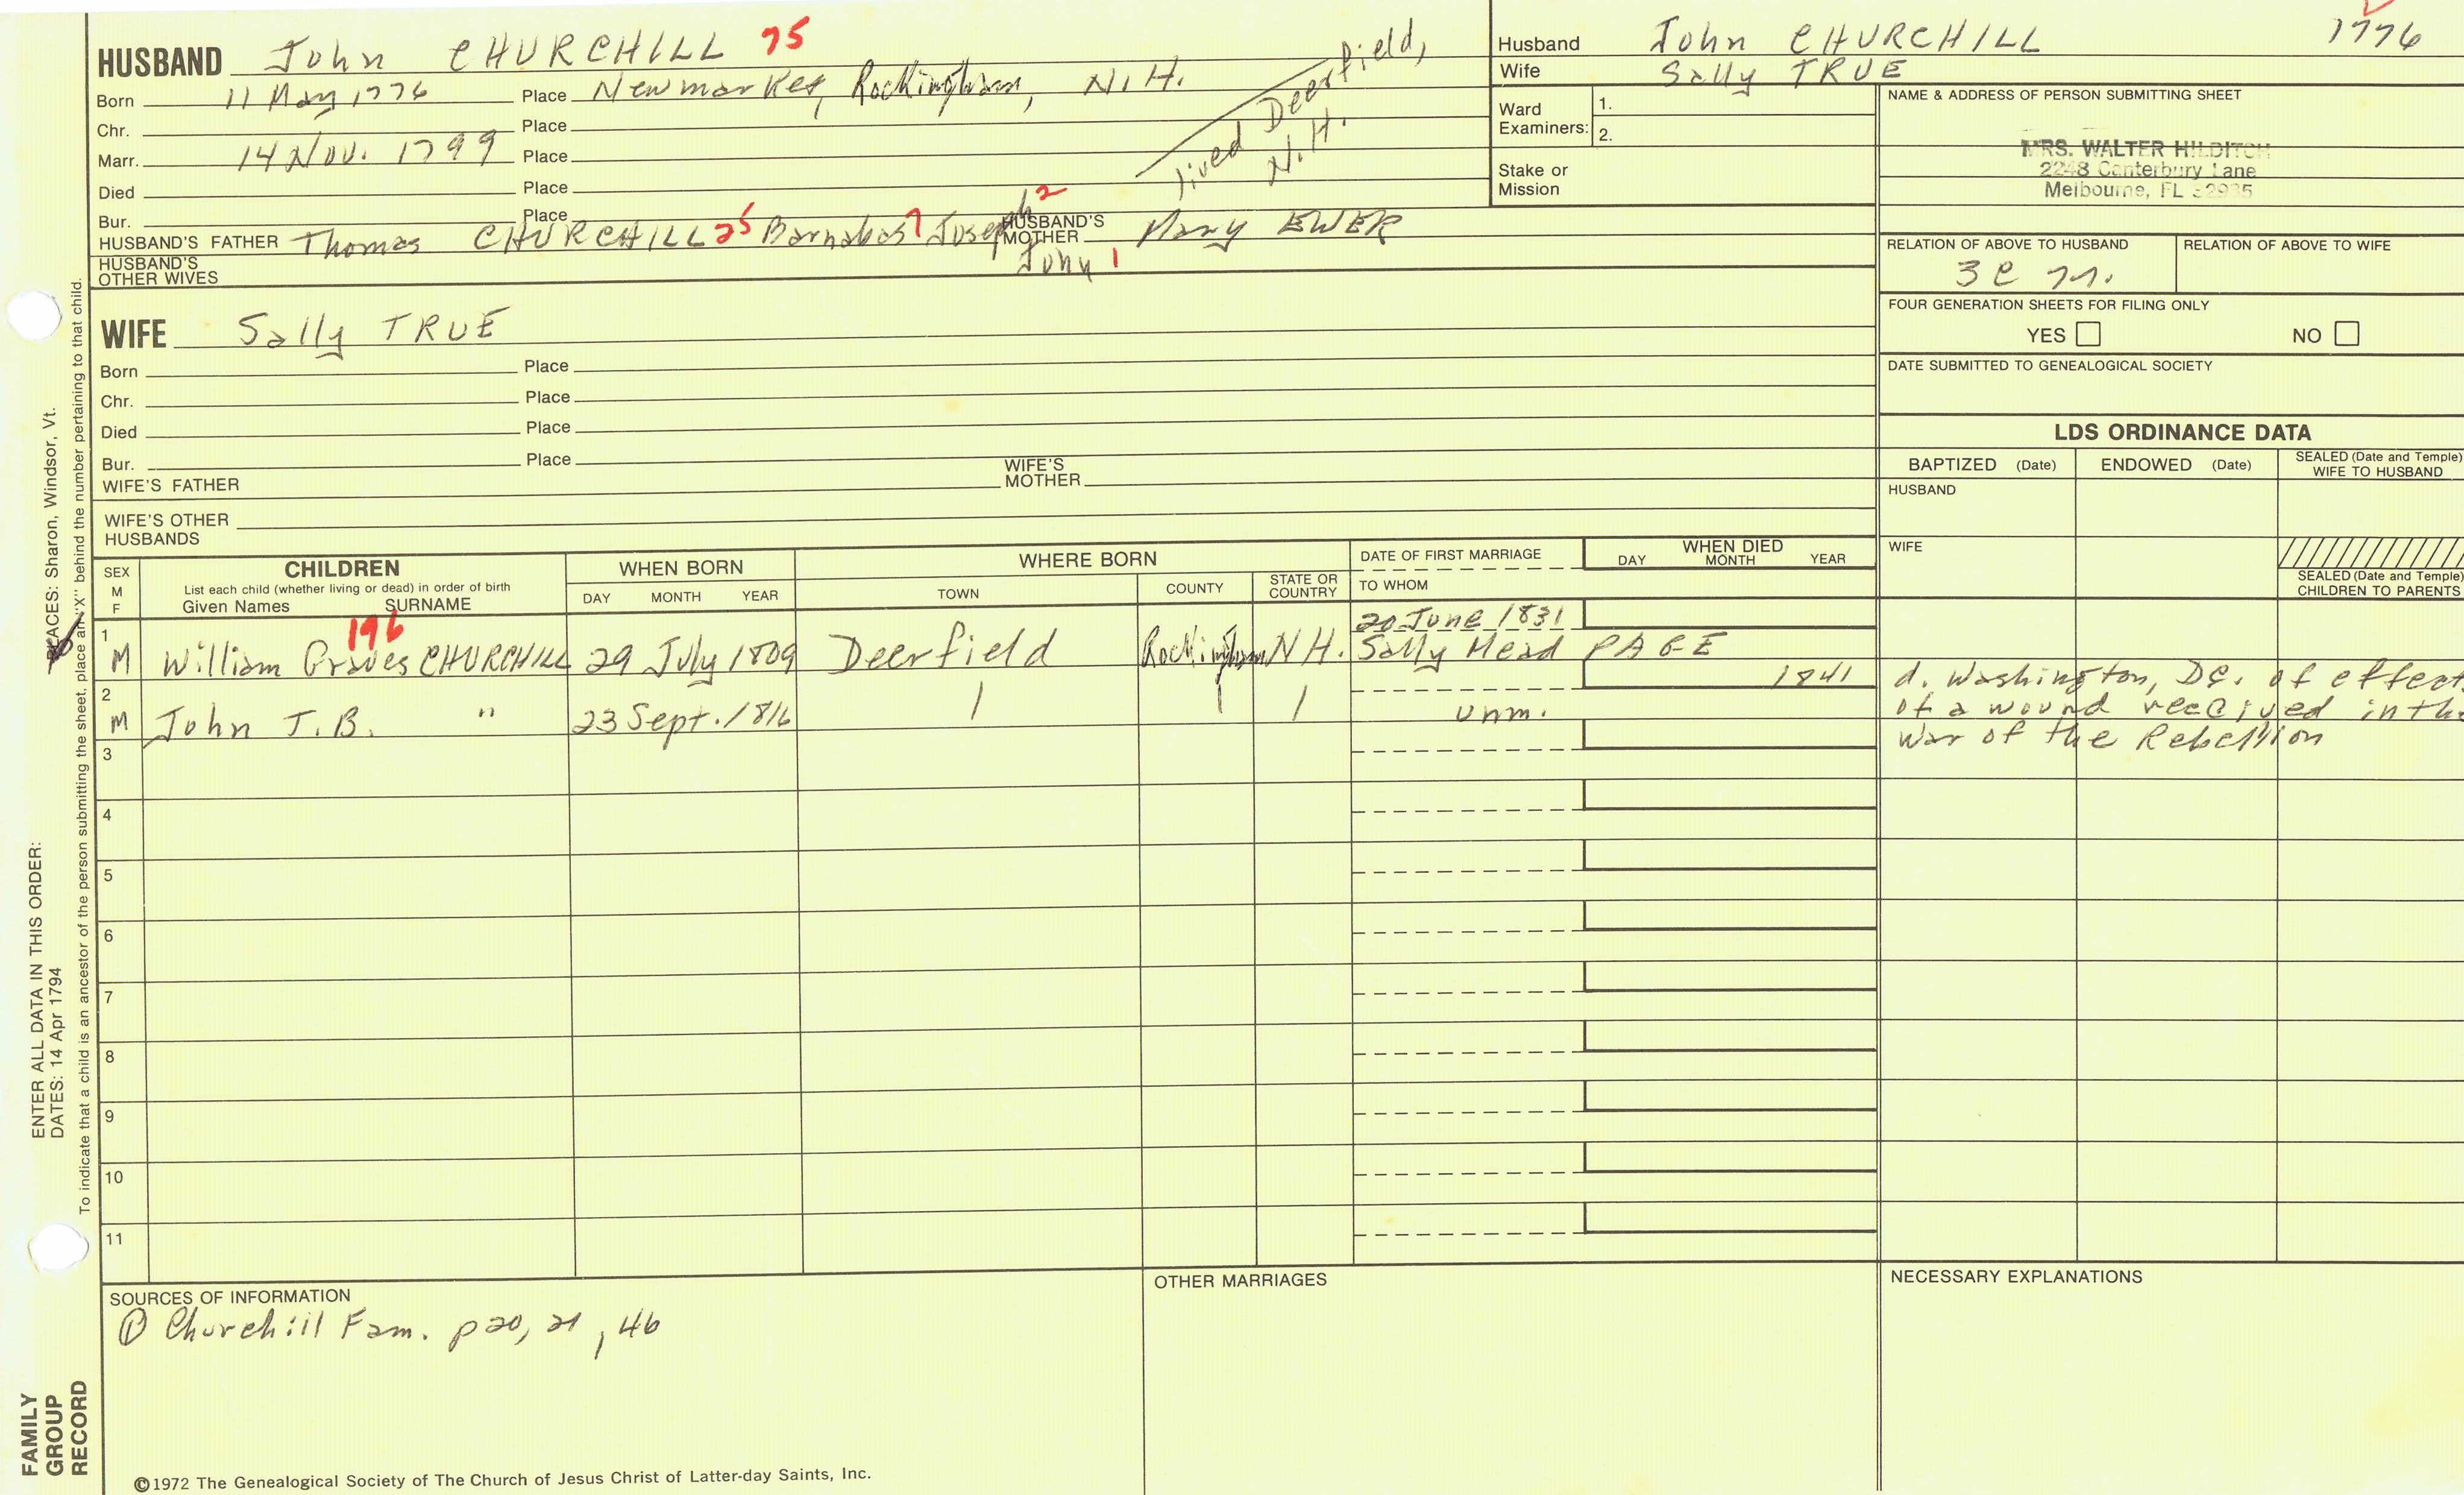 HUSBAND John CHURCHILL 75
Born 11 May 1776 Place Newmarket, Rockingham, N.H.
Chr. Place
Marr. 14 Nov. 1799 Place
Died Place
Bur. Place
lived Deerfield,
N.H.
HUSBAND'S FATHER Thomas CHURCHILL 25 Barnabas 7 Joseph 2 John 1
HUSBAND'S MOTHER Mary EWER
HUSBAND'S OTHER WIVES
Husband John CHURCHILL 1776
Wife Sally TRUE
Ward Examiners: 1.
2.
Stake or Mission
NAME & ADDRESS OF PERSON SUBMITTING SHEET
MRS. WALTER HILDITCH
2248 Canterbury Lane
Melbourne, FL 32935
RELATION OF ABOVE TO HUSBAND RELATION OF ABOVE TO WIFE
3 C
FOUR GENERATION SHEETS FOR FILING ONLY
YES NO
DATE SUBMITTED TO GENEALOGICAL SOCIETY
WIFE Sally TRUE
Born Place
Chr. Place
Died Place
Bur. Place
WIFE'S FATHER WIFE'S MOTHER
WIFE'S OTHER HUSBANDS
LDS ORDINANCE DATA
BAPTIZED (Date) ENDOWED (Date) SEALED (Date and Temple) WIFE TO HUSBAND
HUSBAND
WIFE
SEALED (Date and Temple) CHILDREN TO PARENTS
SEX M F
CHILDREN
List each child (whether living or dead) in order of birth
Given Names SURNAME
WHEN BORN
DAY MONTH YEAR
WHERE BORN
TOWN COUNTY STATE OR COUNTRY
DATE OF FIRST MARRIAGE
TO WHOM
WHEN DIED
DAY MONTH YEAR
196
20 June 1831
1 M William Graves CHURCHILL 29 July 1809 Deerfield Rockingham N.H. Sally Mead PAGE
1841 d. Washington, DC. of effects
2 M John T.B. " 23 Sept. 1816 | | | unm. of a wound received in the
War of the Rebellion
3
4
5
6
7
8
9
10
11
SOURCES OF INFORMATION
① Churchill Fam. p 20, 21, 46
OTHER MARRIAGES
NECESSARY EXPLANATIONS
©1972 The Genealogical Society of The Church of Jesus Christ of Latter-day Saints, Inc.
FAMILY GROUP RECORD
ENTER ALL DATA IN THIS ORDER:
DATES: 14 Apr 1794
PLACES: Sharon, Windsor, Vt.
To indicate that a child is an ancestor of the person submitting the sheet, place an "X" behind the number pertaining to that child.